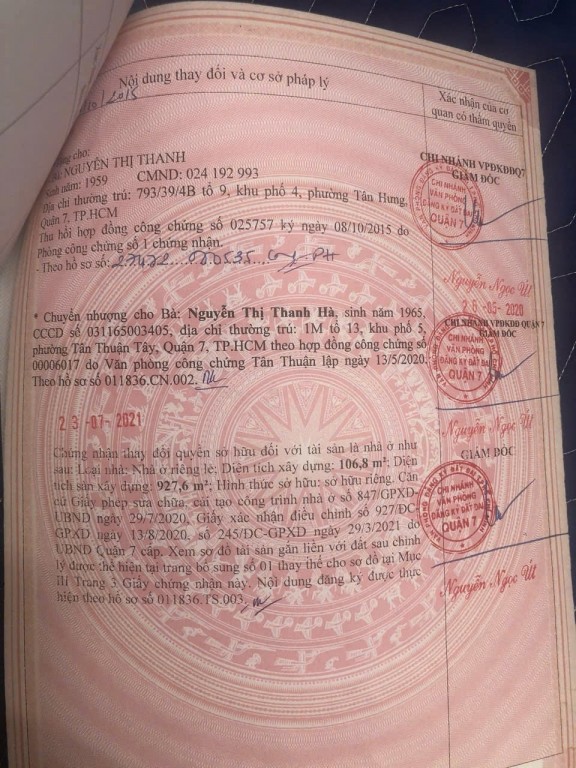 Nội dung thay đổi và cơ sở pháp lý
Xác nhận của cơ
quan có thẩm quyền
/2015
cho:
NGUYỄN THỊ THANH
Sinh năm: 1959 CMND: 024 192 993
Địa chỉ thường trú: 793/39/4B tổ 9, khu phố 4, phường Tân Hưng,
Quận 7, TP.HCM
Thu hồi hợp đồng công chứng số 025757 ký ngày 08/10/2015 do
Phòng công chứng số 1 chứng nhận.
- Theo hồ sơ số:
CHI NHÁNH VPĐKĐĐQ7
GIÁM ĐỐC
CHI NHÁNH
VĂN PHÒNG
ĐĂNG KÝ ĐẤT ĐAI
QUẬN 7
Nguyễn Ngọc Út
* Chuyển nhượng cho Bà: Nguyễn Thị Thanh Hà, sinh năm 1965,
CCCD số 031165003405, địa chỉ thường trú: 1M tổ 13, khu phố 5,
phường Tân Thuận Tây, Quận 7, TP.HCM theo hợp đồng công chứng số
00006017 do Văn phòng công chứng Tân Thuận lập ngày 13/5/2020.
Theo hồ sơ số 011836.CN.002.
26-05-2020
CHI NHÁNH VPĐKĐĐ QUẬN 7
GIÁM ĐỐC
CHI NHÁNH
VĂN PHÒNG
ĐĂNG KÝ ĐẤT ĐAI
QUẬN 7
Nguyễn Ngọc Út
23-07-2021
Chứng nhận thay đổi quyền sở hữu đối với tài sản là nhà ở như
sau: Loại nhà: Nhà ở riêng lẻ; Diện tích xây dựng: 106,8 m²; Diện
tích sàn xây dựng: 927,6 m²; Hình thức sở hữu: sở hữu riêng. Căn
cứ Giấy phép sửa chữa, cải tạo công trình nhà ở số 847/GPXD-
UBND ngày 29/7/2020, Giấy xác nhận điều chỉnh số 927/ĐC-
GPXD ngày 13/8/2020, số 245/ĐC-GPXD ngày 29/3/2021 do
UBND Quận 7 cấp. Xem sơ đồ tài sản gắn liền với đất sau chỉnh
lý được thể hiện tại trang bổ sung số 01 thay thế cho sơ đồ tại Mục
III Trang 3 Giấy chứng nhận này. Nội dung đăng ký được thực
hiện theo hồ sơ số 011836.TS.003.
GIÁM ĐỐC
VĂN PHÒNG ĐĂNG KÝ ĐẤT ĐAI
CHI NHÁNH
VĂN PHÒNG
ĐĂNG KÝ ĐẤT ĐAI
QUẬN 7
Nguyễn Ngọc Út